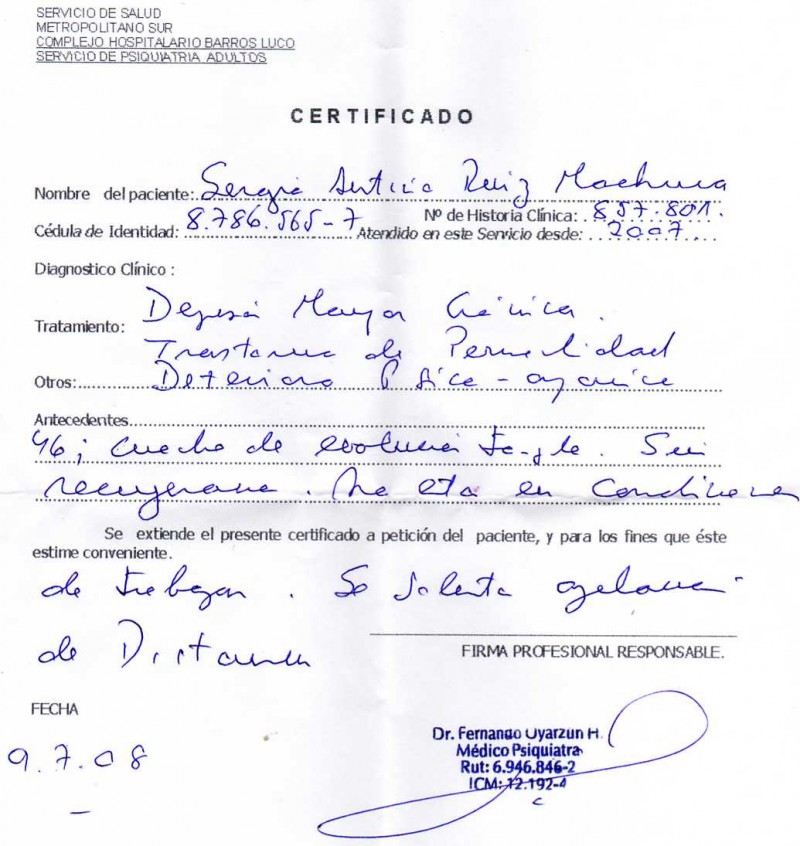 SERVICIO DE SALUD
METROPOLITANO SUR
COMPLEJO HOSPITALARIO BARROS LUCO
SERVICIO DE PSIQUIATRIA ADULTOS
CERTIFICADO
Nombre del paciente: Sergio Antonio Ruiz Machuca
Nº de Historia Clínica: 857.801.
Cédula de Identidad: 8.786.565-7 Atendido en este Servicio desde: 2007
Diagnostico Clínico :
Tratamiento: Depresión Mayor Crónica.
Trastorno de Personalidad
Otros: Deterioro Psico-orgánico
Antecedentes
cuadro de evolución . Sin
recuperación. No está en Condiciones
Se extiende el presente certificado a petición del paciente, y para los fines que éste
estime conveniente.
de trabajar. Se solicita apelación
de Dictamen
FIRMA PROFESIONAL RESPONSABLE.
FECHA
9.7.08
Dr. Fernando Oyarzun H.
Médico Psiquiatra
Rut: 6.946.846-2
ICM: 12.192-4